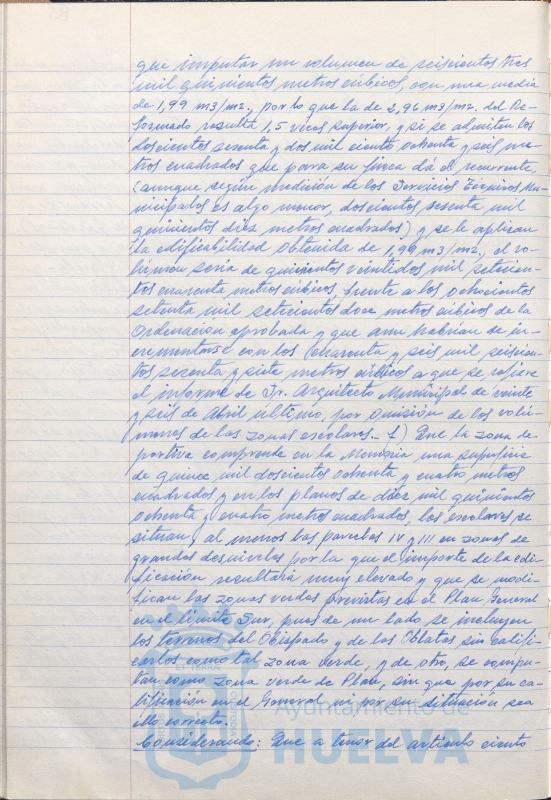 que imputar un volumen de seiscientos tres
mil quinientos metros cúbicos, con una media
de 1,99 m3/m2., por lo que la de 2,96 m3/m2. del Re-
formado resulta 1,5 veces superior, y si se admiten los
doscientos sesenta y dos mil ciento ochenta y seis me-
tros cuadrados que para su finca dá el recurrente,
(aunque según medición de los Servicios Técnicos Mu-
nicipales es algo menor, doscientos sesenta mil
quinientos diez metros cuadrados) y se le aplican
la edificabilidad obtenida de 1,99 m3/m2., el vo-
lúmen sería de quinientos veintidos mil setecien-
tos cuarenta metros cúbicos, frente a los ochocientos
setenta mil setecientos doce metros cúbicos de la
Ordenación aprobada y que aun habrían de in-
crementarse con los cuarenta y seis mil seiscien-
tos sesenta y siete metros cúbicos a que se refiere
el informe de Sr. Arquitecto Municipal de veinte
y seis de Abril último, por omisión de los volú-
menes de las zonas escolares.- f) Que la zona de-
portiva comprende en la Memoria una superficie
de quince mil doscientos ochenta y cuatro metros
cuadrados y en los planos de diez mil quinientos
ochenta y cuatro metros cuadrados, los escolares se
situan, al menos las parcelas IV y III en zonas de
grandes desniveles por la que el importe de la edi-
ficación resultará muy elevado y que se modi-
fican las zonas verdes previstas en el Plan General
en el límite Sur, pues de un lado se incluyen
los terrenos del Obispado y de las Oblatas sin califi-
carlos como tal zona verde, y de otro, se compu-
tan como zona verde de Plan, sin que por su ca-
lificación en el General ni por su situación sea
ello correcto.
Considerando: Que a tenor del artículo ciento
Ayuntamiento de
HUELVA